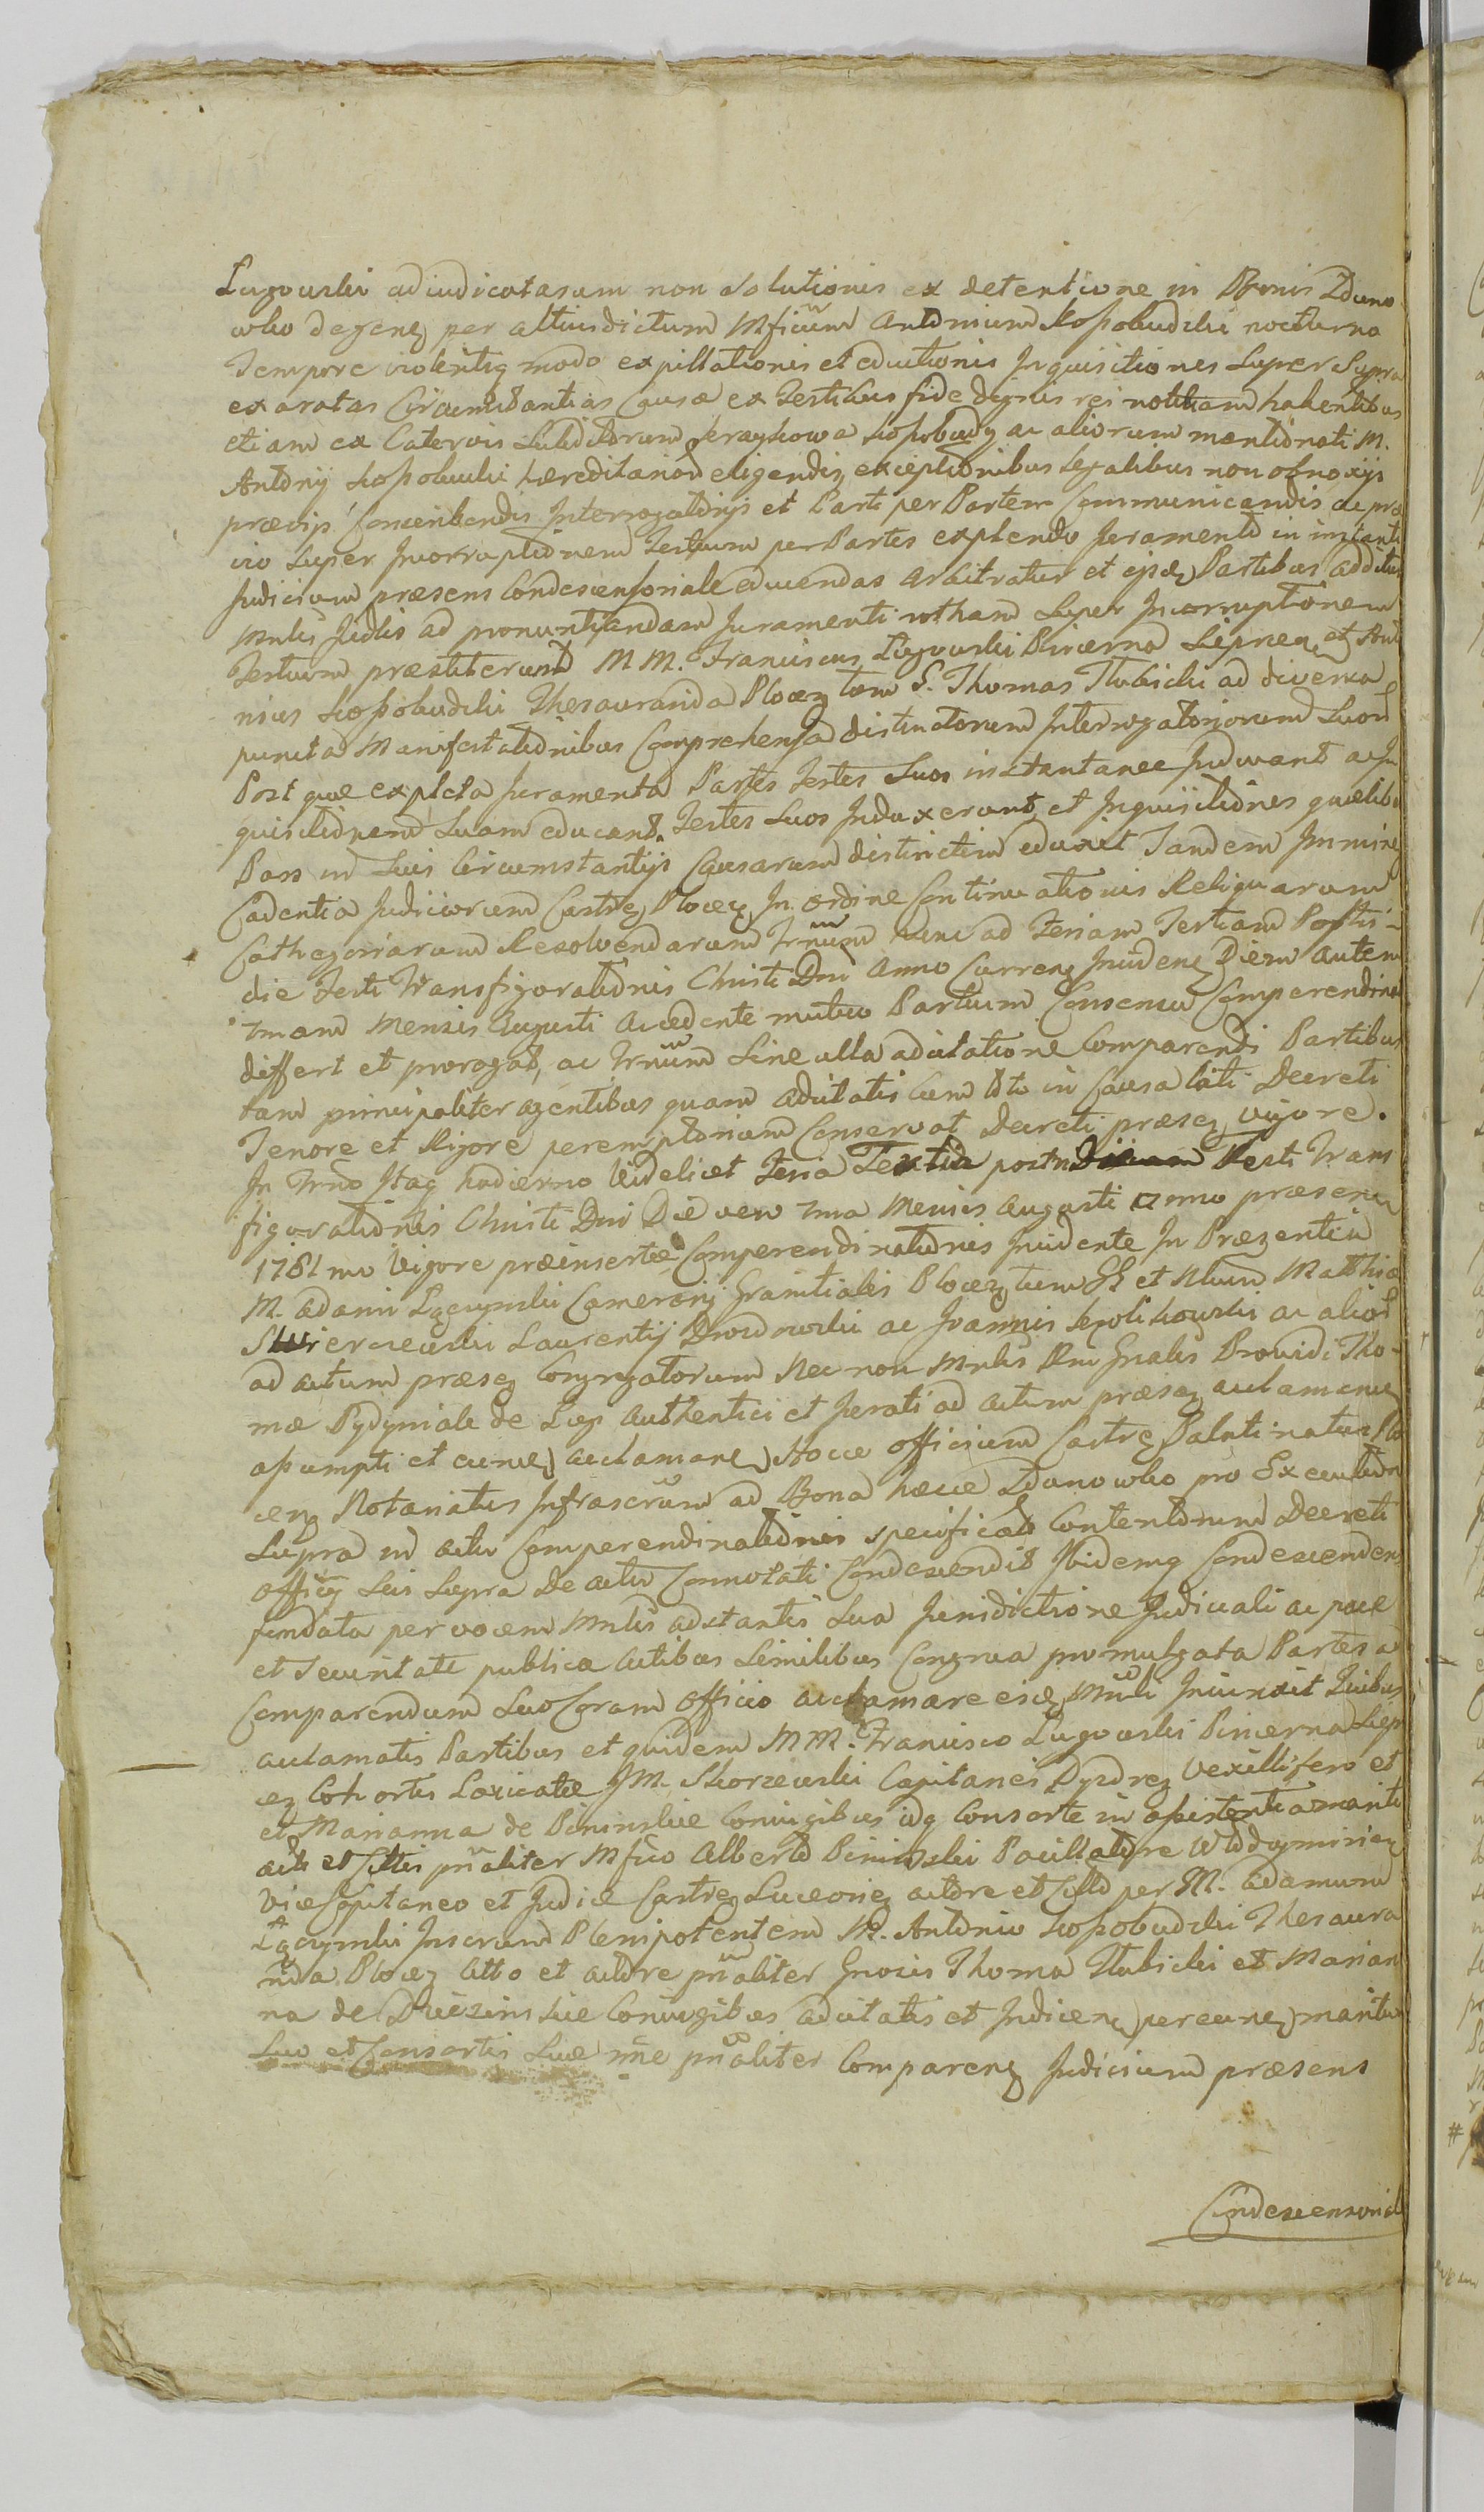 Lugowski adiudicatarum non solutionis ex detentione in Bonis Zduno
wko degenę per altius dictum Mficum Antonium Kossobudzki nocturno
Tempore violentię modo expillationis et eductionis Inquisitiones super supra
exaratas Circumstantias Causæ ex Testibus fide dignis rei notitiam habentibus
etiam ex Catervis Subditorum Kossobudy ac aliorum mentionati M.
Antonij Kossobudzki hæreditariorum eligendis, exceptionibus legalibus non obnoxijs
prævijs Conscribendis Interrogatorijs et Parti per Partem Communicandis ac præ
vio super Incorruptionem Testium per Partes explendo Juramento in instanti
Judicium præsens Condescensoriale educendas arbitratur et ipsis Partibus additur
Mnlis Judlis ad pronuntiandam Juramenti rotham super Incorruptionem
Testium præstiterunt M M. Franciscus Lugowski Pincerna et Anto
nius Kossobudzki Thesaurarida Plocen tum S. Thomas Tłubicki ad diversa
puncta Manifestationibus Comprehensa distinctorum Interrogatoriorum suor
Post quæ expleta Juramenta Partes Testes suos instantanee Inducant ac In
quisitionem suam educant. Testes suos Induxerunt et Inquisitiones quælibet
Pars in suis Circumstantijs Causarum distinctim eduxit Tandem Immine
Cadentia Judiciorum Castren Plocen In ordine Continuationis Reliquarum
Cathegoriarum Resolvendarum Trnum hunc ad Feriam Tertiam Posttri-
die Festi Transfigurationis Christi Dni Anno Currenę Incidenę Diem autem
7mam Mensis Augusti accedente mutuo Partium Consensu Comperendinat
differt et prorogat, ac Trnum sine ulla adcitatione Comparendi Partibus
tam principaliter agentibus quam adcitatis cum toto in Causa lati Decreti
Tenore et Rigore peremptorium Conservat Decreti præsenę vigore.
In Trno Itaq hodierno videlicet Feria Tertia post Festi Trans
figurationis Christi Dni Die vero 7ma Mensis Augusti anno præsenę
1781mo Vigore præinsertæ Comperendinationis Incidente In Præzentia
M. Adami Łączynski Camerarij Granitialis Plocen tum GG et Nlium Matthiæ
Skwierczewski Laurentij Drozdowski ac Joannis ac alior
ad actum præsenę Congregatorum Nec non Mnlis Rni Gnalis Providi Tho-
mæ de Authentici et Jurati ad actum præsenę acclamanę
assumpti et eunę acclamanę Hocce Officium Castrę Palatinatus Plo
cenę Notariatus Infrascrum ad Bona hæcce Zdunowko pro Executione
supra in actu Comperendinationis specificato Contentorum Decreti
Officij sui supra de actu Connotati Condescendit Ibidemq Condescendens
fundata per vocem Mnlis adstantis sua Jurisdictione Judiciali ac pace
et securitate publica actibus similibus Congrua promulgata Partes ad
Comparendum suo Coram Officio acclamare eidę Mnli Iniunxit Quibus
acclamatis Partibus et quidem M M. Francisco Lugowski Pincerna
Cohortis Loricatæ J M. Skorzewski Capitanei Vexillifero et
et Marianna de Bininskie Coniugibus idq Consorte in assistentia mariti
actis et Cittis prnaliter Mfico Alberto Bininski Pocillatore
Vice Capitaneo et Judice Castrę actore et Citto per M. Adamum
Łączynski Inscrum Plenipotentem M. Antonio Kossobudzki Thesaura
rida Plocę Citto et actore prnaliter Gnosis Thoma Tłubicki et Marian
na de Coniugibus adcitatis et Indicenę per eunę maritum
suo et Consortis suæ nne prnaliter Comparenę Judicium præsens
Condescensoriale